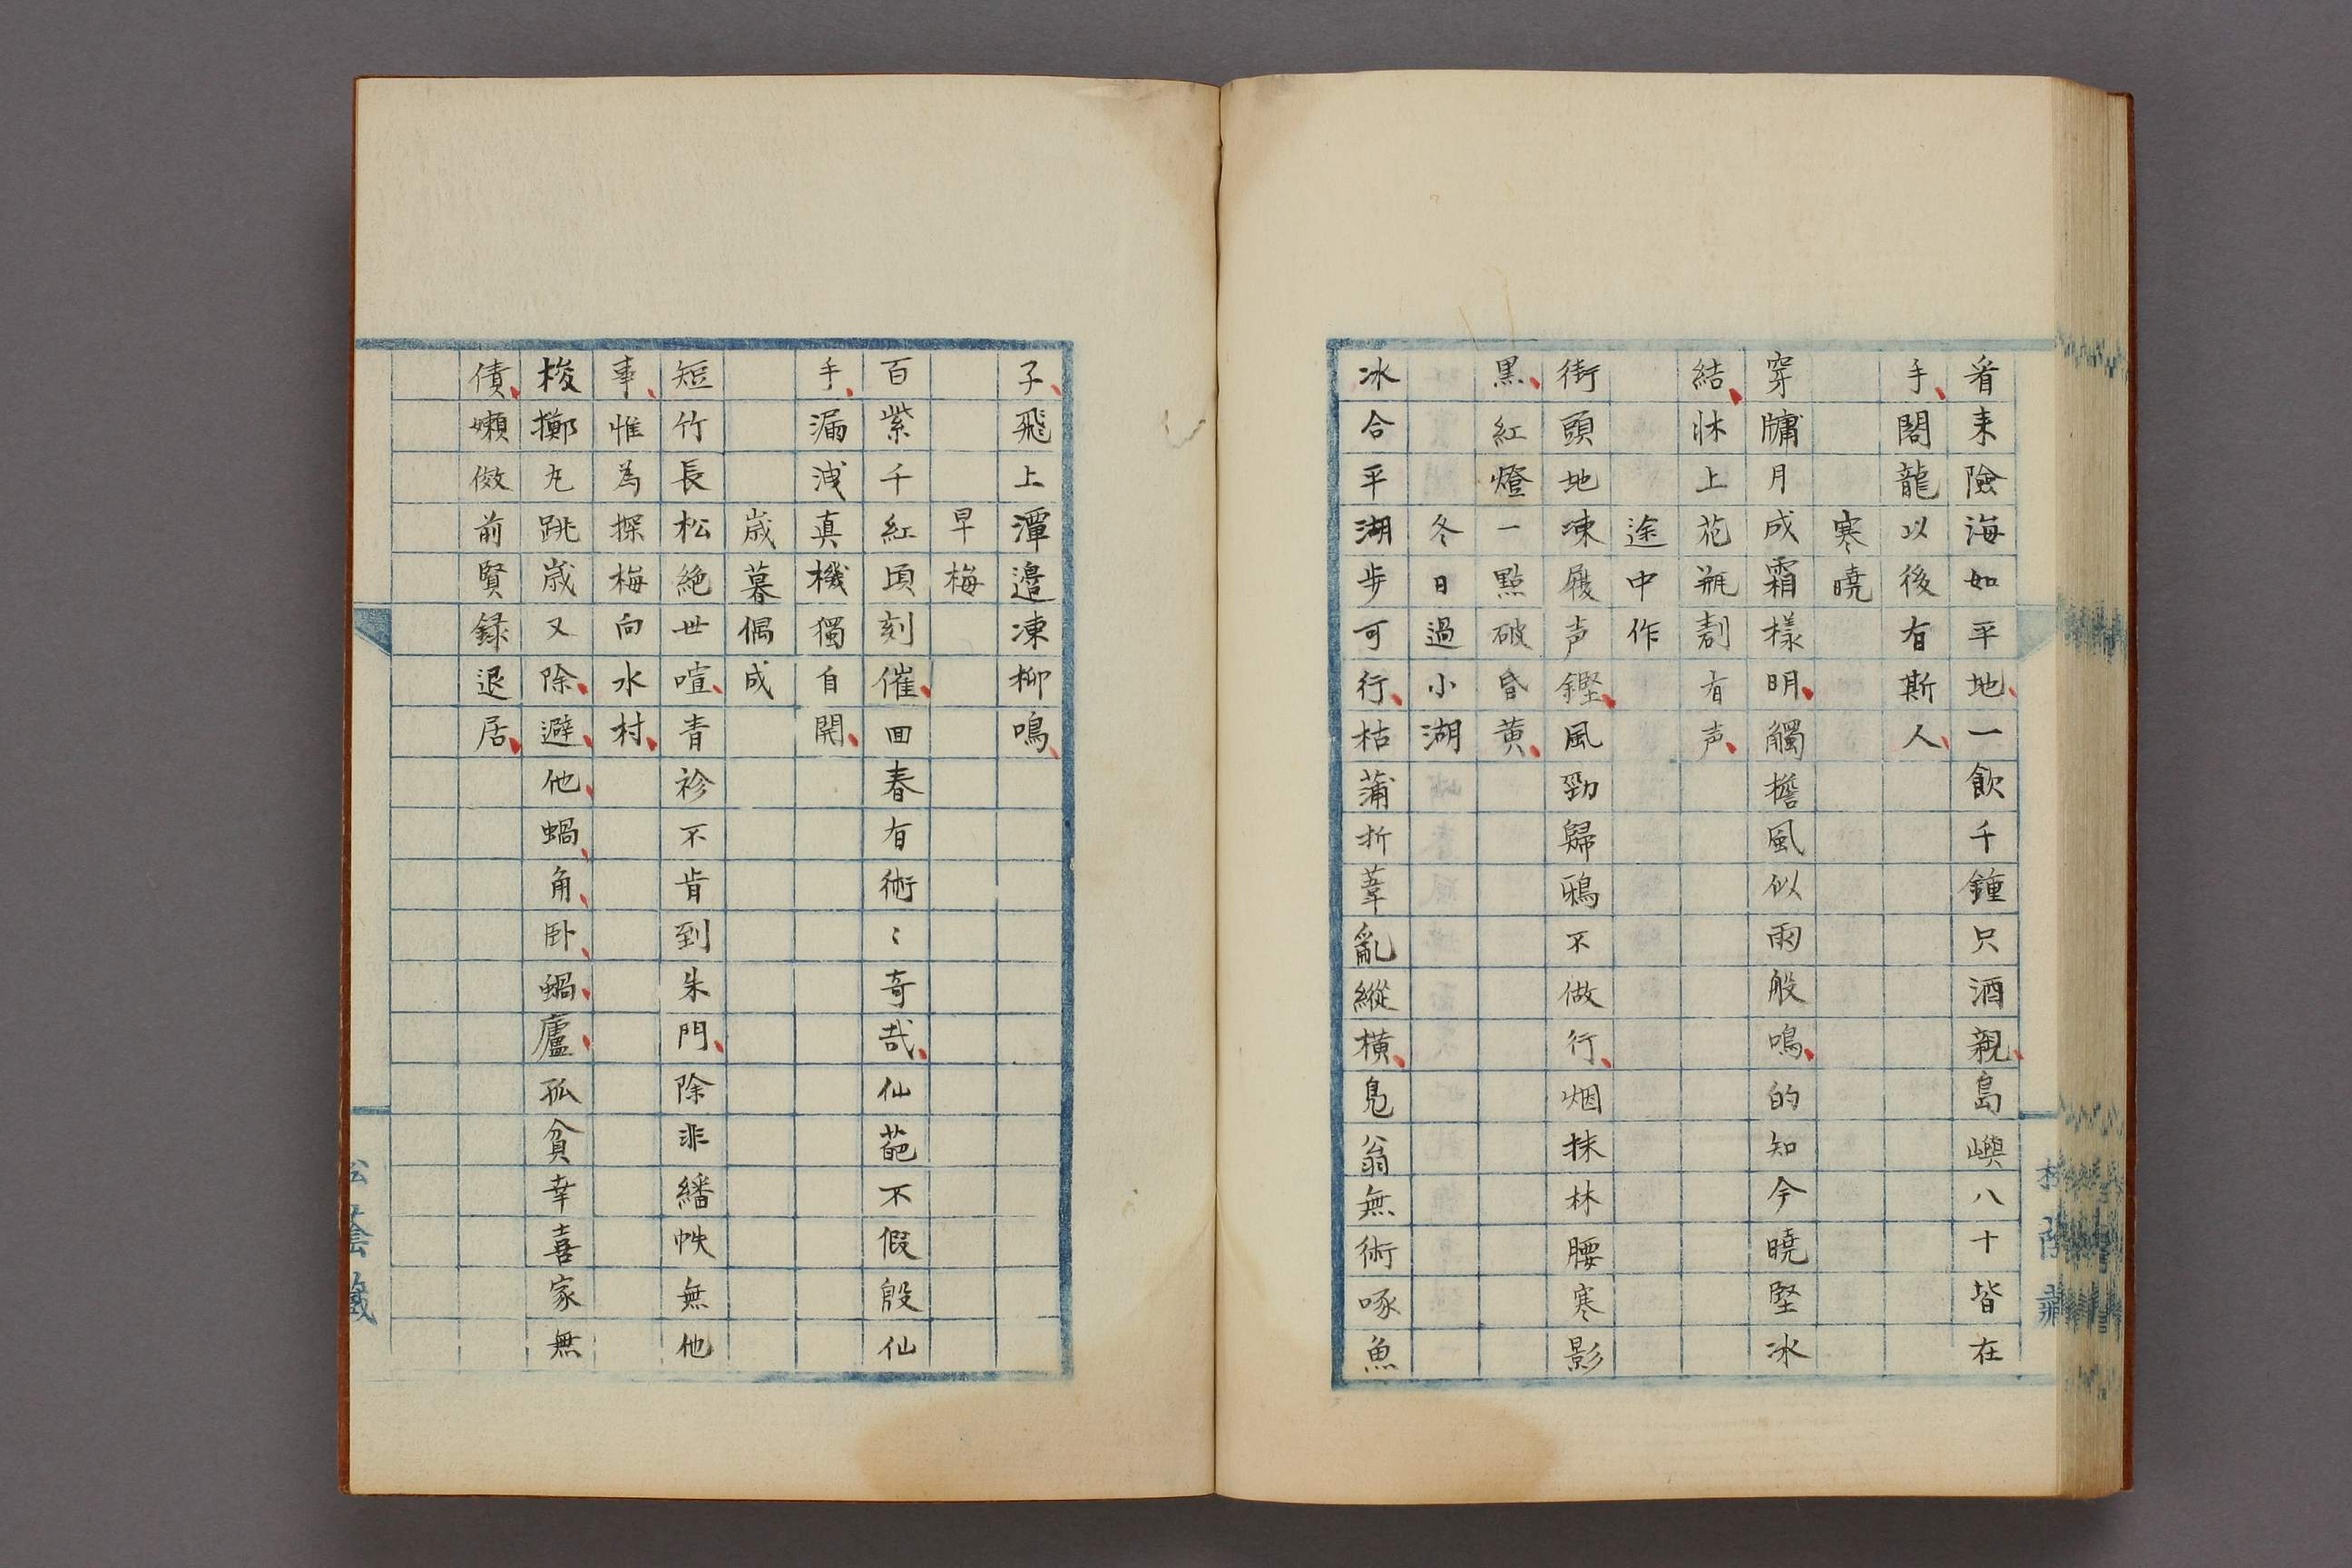 看来險海如平地一飲千鍾只酒親島嶼八十皆在
手閣龍以後有斯人
寒曉
穿牗月成霜様明觸檐風似雨般鳴的知今曉堅冰
結牀上花瓶割有声
途中作
街頭地凍屐声鏗風勁歸鴉不做行烟抹林腰寒影
黒紅燈一點破昏黄
冬日過小湖
冰合平湖歩可行枯蒲折葦亂縱橫鳬翁無術啄魚
子飛上潭邉凍柳鳴
早梅
百紫千紅頃刻催囬春有術〻奇哉仙葩不假殷仙
手漏洩真機獨自開
歳暮偶成
短竹長松絶世喧青衫不肯到朱門除非繙帙無他
事惟為探梅向水村
梭擲丸跳歳又除避他蝸角卧蝸廬孤貧幸喜家無
債嬾倣前賢録退居